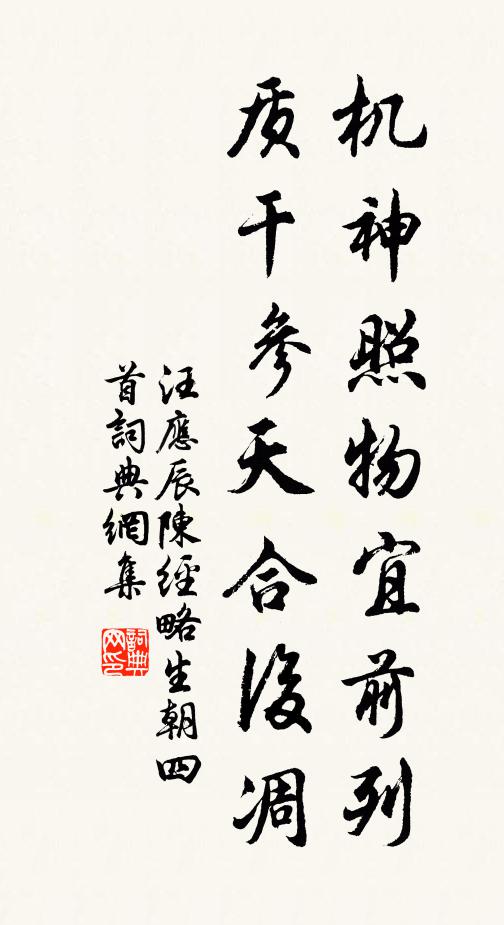 机神照物宜前列
质干參天合後凋
汪應辰陳經略生朝四
首詞典網集
詞典
网印